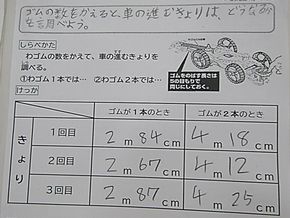 ゴムの数をかえると、車の進むきょりは、どうなるか
を調べよう。
しらべかた
わゴムの数をかえて、車の進むきょりを
調べる。
①わゴム1本では… ②わゴム2本では…
ゴムをのばす長さは
5の目もりで
同じにしておく。
けっか
ゴムが1本のとき ゴムが2本のとき
きょり
1回目 2m84cm 4m18cm
2回目 2m67cm 4m12cm
3回目 2m87cm 4m25cm